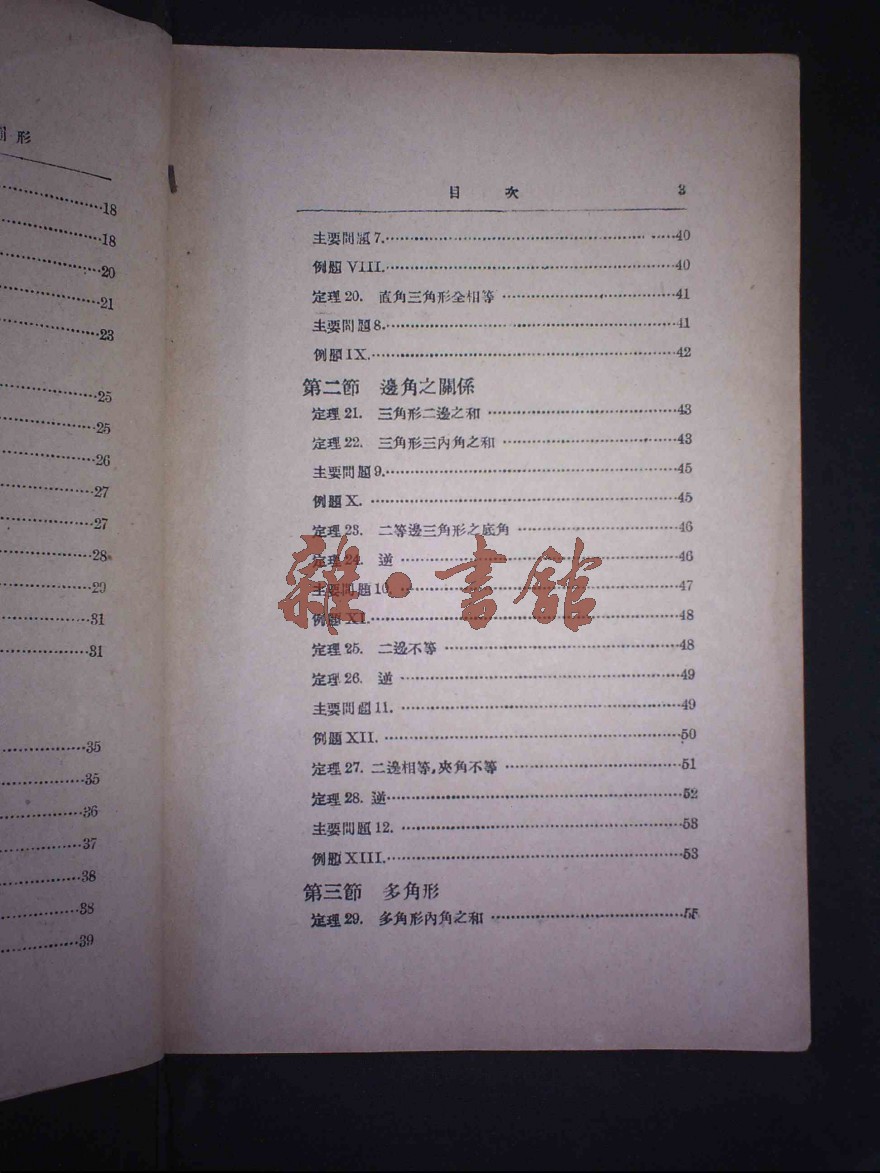 形
18
18
20
21
23
25
25
26
27
27
28
29
31
31
35
35
36
37
38
38
39
目 次 3
主要問題7.……40
例題VIII.……40
定理20. 直角三角形全相等……41
主要問題8.……41
例題IX.……42
第二節 邊角之關係
定理21. 三角形二邊之和……43
定理22. 三角形三內角之和……43
主要問題9.……45
例題X.……45
定理23. 二等邊三角形之底角……46
定理24. 逆……46
主要問題10.……47
例題XI.……48
定理25. 二邊不等……48
定理26. 逆……49
主要問題11.……49
例題XII.……50
定理27. 二邊相等,夾角不等……51
定理28. 逆……52
主要問題12.……53
例題XIII.……53
第三節 多角形
定理29. 多角形內角之和……55
雜·書館